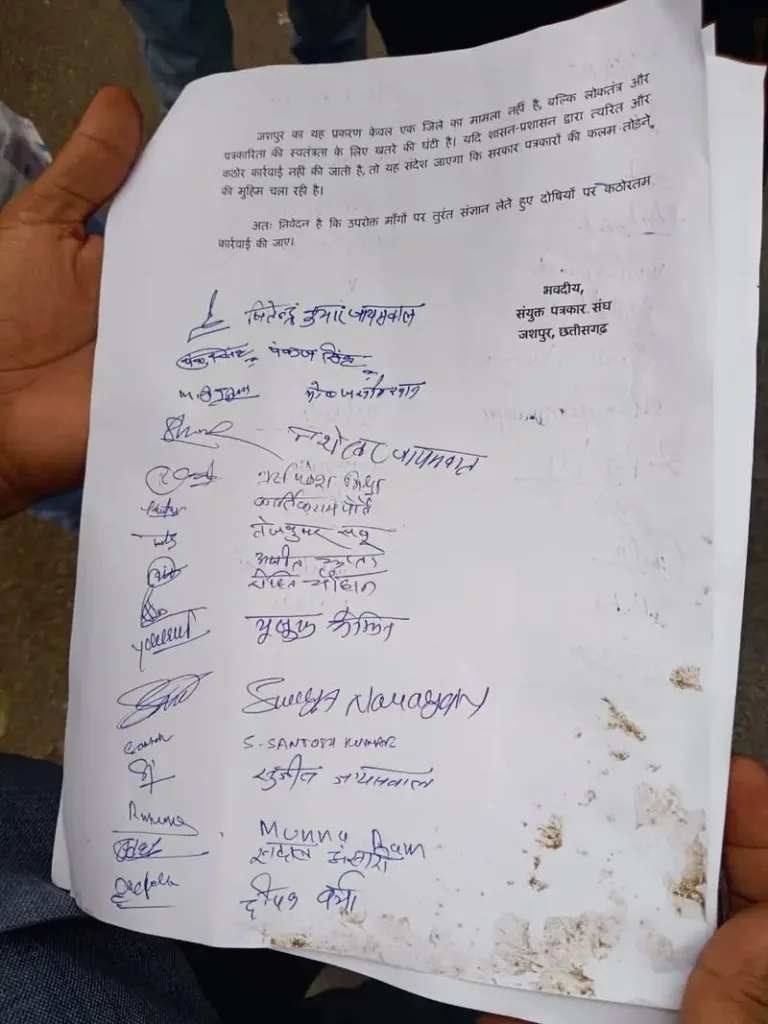 जशपुर का यह प्रकरण केवल एक जिले का मामला नहीं है, बल्कि लोकतंत्र और
पत्रकारिता की स्वतंत्रता के लिए खतरे की घंटी है। यदि शासन-प्रशासन द्वारा त्वरित और
कठोर कार्रवाई नहीं की जाती है, तो यह संदेश जाएगा कि सरकार पत्रकारों की कलम तोड़ने
की मुहिम चला रही है।
अतः निवेदन है कि उपरोक्त माँगों पर तुरंत संज्ञान लेते हुए दोषियों पर कठोरतम
कार्रवाई की जाए।
भवदीय,
संयुक्त पत्रकार संघ
जशपुर, छत्तीसगढ़
जितेन्द्र कुमार जायसवाल
पंकज सिंह
जायसवाल
मिश्रा
कार्तिक
तेजकुमार साहू
गुप्ता
रोहित चौहान
Surya Narayan
S-SANTOSH KUMAR
सुजीत जायसवाल
Munna Ram
अंसारी
दीपक वर्मा